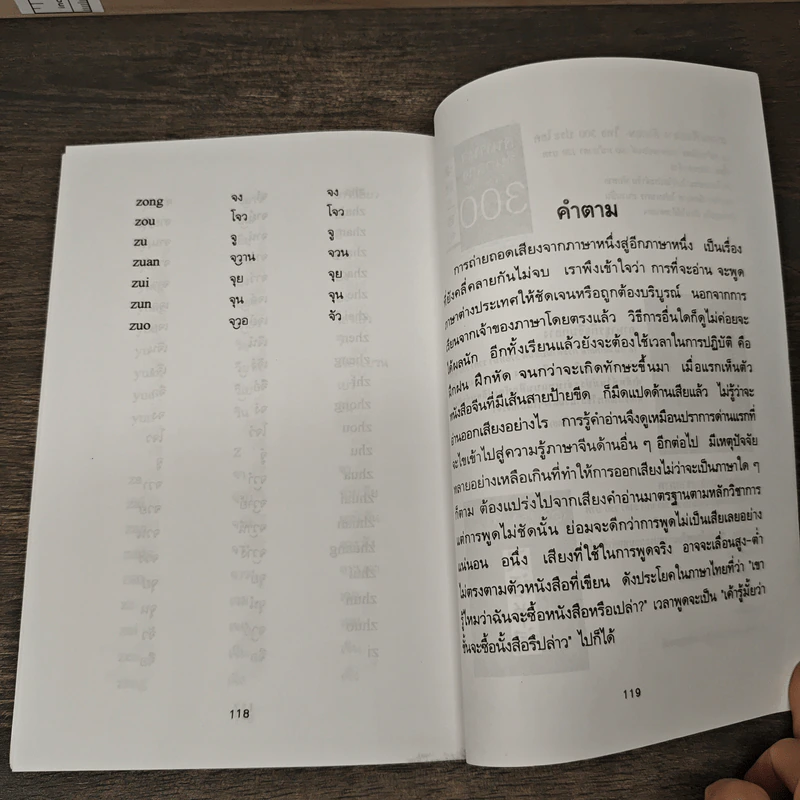 zong จง จง
zou โจว โจว
zu จู จู
zuan จวาน จวน
zui จุย จุย
zun จุน จุน
zuo จวอ จัว
118
คำตาม
การถ่ายถอดเสียงจากภาษาหนึ่งสู่อีกภาษาหนึ่ง เป็นเรื่อง
ที่ยังคลี่คลายกันไม่จบ เราพึงเข้าใจว่า การที่จะอ่าน จะพูด
ภาษาต่างประเทศให้ชัดเจนหรือถูกต้องบริบูรณ์ นอกจากการ
เรียนจากเจ้าของภาษาโดยตรงแล้ว วิธีการอื่นใดก็ดูไม่ค่อยจะ
ได้ผลนัก อีกทั้งเรียนแล้วยังจะต้องใช้เวลาในการปฏิบัติ คือ
ฝึกฝน ฝึกหัด จนกว่าจะเกิดทักษะขึ้นมา เมื่อแรกเห็นตัว
หนังสือจีนที่มีเส้นสายป้ายขีด ก็มืดแปดด้านเสียแล้ว ไม่รู้ว่าจะ
อ่านออกเสียงอย่างไร การรู้คำอ่านจึงดูเหมือนปราการด่านแรกที่
จะไขเข้าไปสู่ความรู้ภาษาจีนด้านอื่น ๆ อีกต่อไป มีเหตุปัจจัย
หลายอย่างเหลือเกินที่ทำให้การออกเสียงไม่ว่าจะเป็นภาษาใด ๆ
ก็ตาม ต้องแปร่งไปจากเสียงคำอ่านมาตรฐานตามหลักวิชาการ
แต่การพูดไม่ชัดนั้น ย่อมจะดีกว่าการพูดไม่เป็นเสียเลยอย่าง
แน่นอน อนึ่ง เสียงที่ใช้ในการพูดจริง อาจจะเลื่อนสูง-ต่ำ
ไม่ตรงตามตัวหนังสือที่เขียน ดังประโยคในภาษาไทยที่ว่า "เขา
รู้ไหมว่าฉันจะซื้อหนังสือหรือเปล่า?" เวลาพูดจะเป็น "เค้ารู้มั้ยว่า
ชั้นจะซื้อนั้งสือรึปล่าว" ไปก็ได้
119